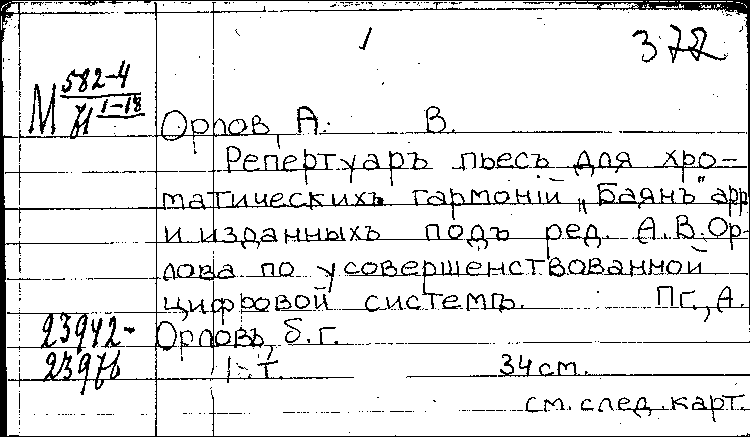 1 372
М 582-4
1-18
Орлов, А. В.
Репертуаръ пьесъ для хро-
матическихъ гармонiй „Баянъ" арр
и изданныхъ подъ ред. А.В.Ор-
лова по усовершенствованной
цифровой системѣ. Пг., А.
23942- Орловъ, б.г.
23976 1 т. 34 см.
см. след. карт.